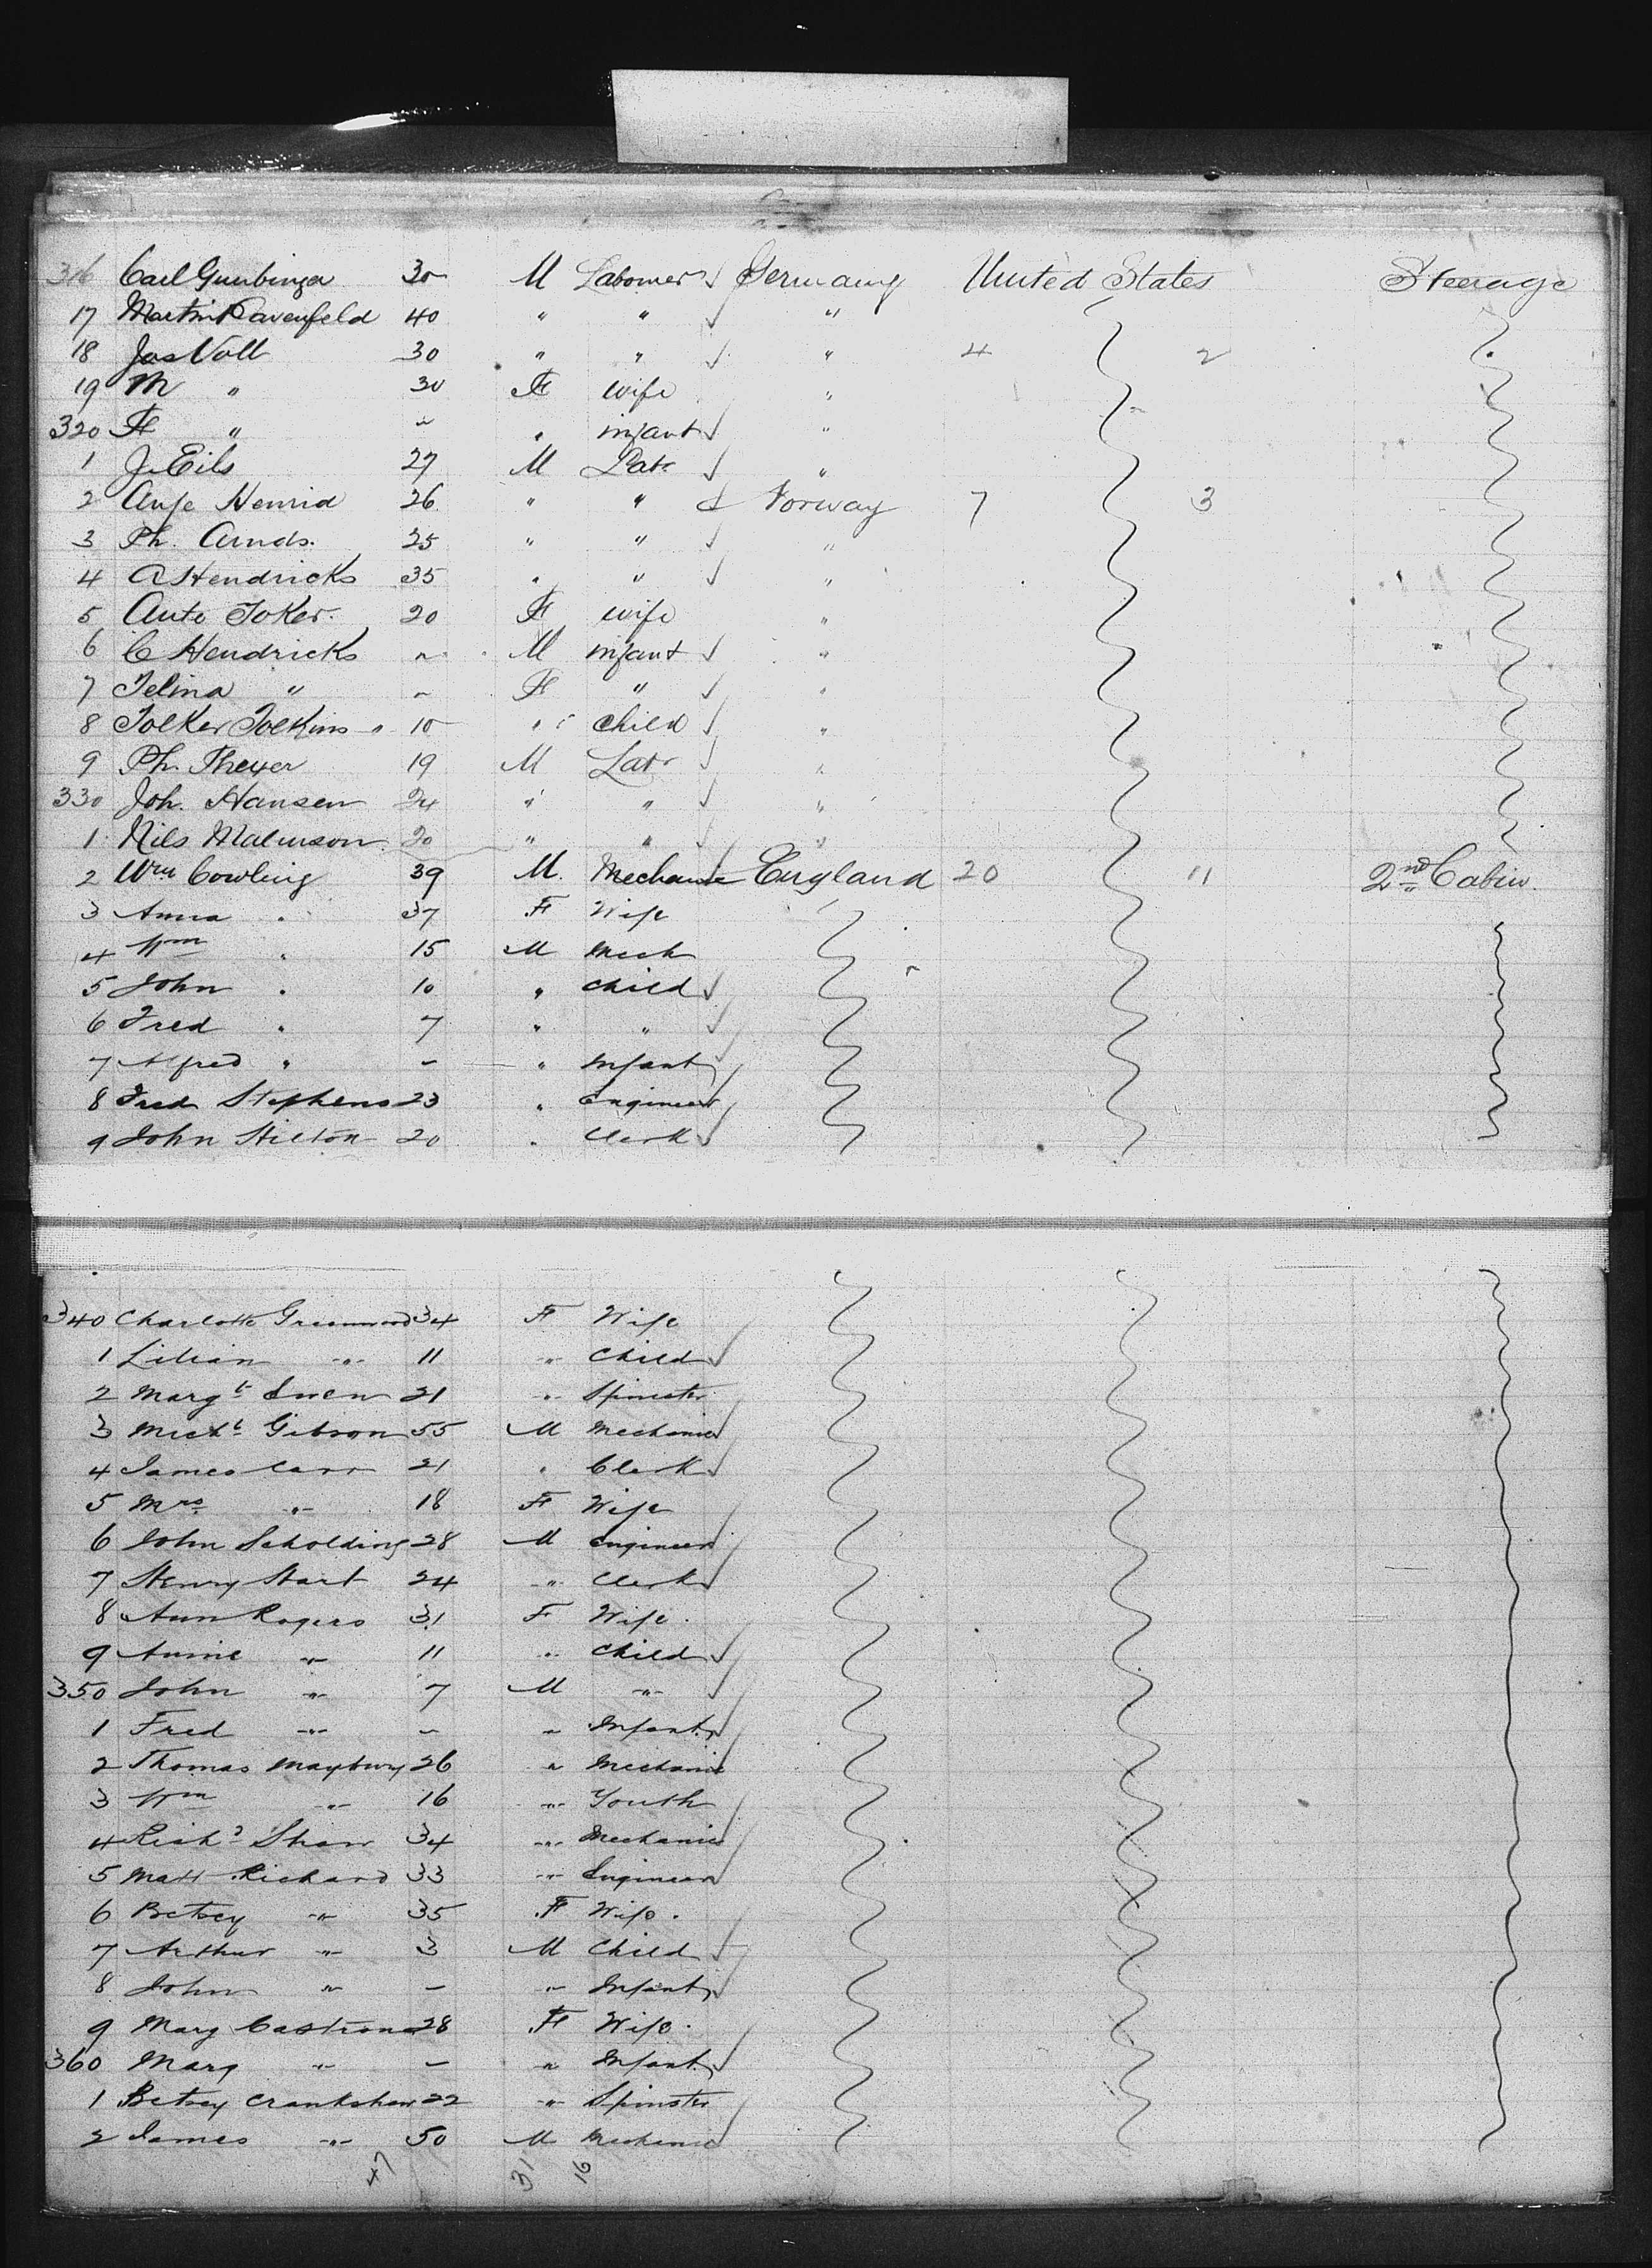 316 Carl Gumbinga 30 M Labourer Germany United States Steerage
17 Martin Ravenfeld 40 " " "
18 Jas Voll 30 " " " 4 2
19 M " 30 F wife "
320 F " " infant "
1 J. Eils 27 M Labr "
2 Anje Henrid 26 " " Norway 7 3
3 Ph. Arnds. 25 " " "
4 A Hendricks 35 " " "
5 Ante Toker. 20 F wife "
6 C Hendricks M infant "
7 Telina " F " "
8 Tolker Tolkins " 10 " child "
9 Ph. Theyer 19 M Labr "
330 Joh. Hansen 24 " " "
1 Nils Malmson 20 " " "
2 Wm Cowling 39 M. Mechanic England 20 11 2nd Cabin.
3 Anna " 37 F Wife
4 Wm " 15 M Mech
5 John " 10 " child
6 Fred " 7 " "
7 Alfred " - " Infant
8 Fred Stephens 23 " Engineer
9 John Hilton 20 " Clerk
340 Charlotte Greenwood 34 F Wife
1 Lilian " 11 " Child
2 Margt Owen 21 " Spinster
3 Michl Gibson 55 M Mechanic
4 James Carr 21 " Clerk
5 Mrs " 18 F Wife
6 John Scholding 28 M Engineer
7 Henry Hart 24 " Clerk
8 Ann Rogers 31 F Wife.
9 Annie " 11 " Child
350 John " 7 M "
1 Fred " - " Infant
2 Thomas Maybury 26 " Mechanic
3 Wm " 16 " Youth
4 Richd Shaw 34 " Mechanic
5 Matt Richard 33 " Engineer
6 Betsey " 35 F Wife.
7 Arthur " 3 M Child
8 John " - " Infant
9 Mary 28 F Wife.
360 Mary " - " Infant
1 Betsey Crankshaw 22 " Spinster
2 James " 50 M Mechanic
47 31 16